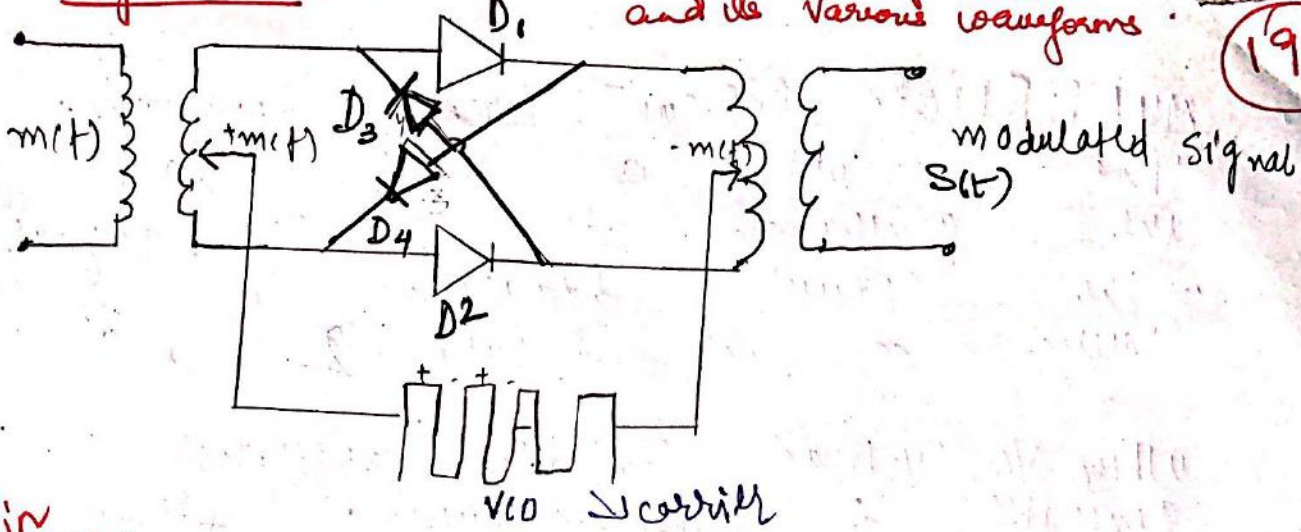 and its Various waveforms.
19
D1
m(t)
+m(t)
D3
-m(t)
modulated Signal
S(t)
D4
D2
+ +
carrier
in